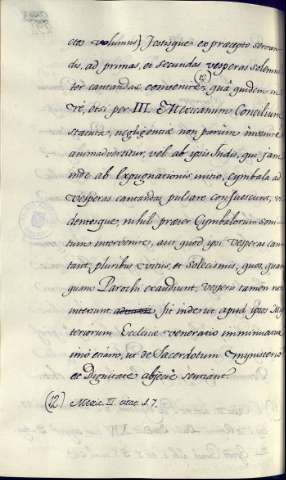 etos volumus) Festisque ex præcepto servan-
dis, ad primas, et secundas vesperas solemni-
ter cantandas convenire, (12) qua quidem in
re, etsi per III. Mexicanum Concilium
statuta, negligentia non parum inesse
animadvertitur, vel ab ipsis Indis, qui jam
inde ab expugnationis initio, cymbala ad
vesperas cantandas pulsare consueverunt, vi-
dentesque, nihil præter Cymbalorum soni-
tum intervenire, aut quod ipsi vesperas can-
tant, pluribus vitiis, et Solecismis, quos, quam-
quam Parochi exaudiunt, vesperis tamen non
intersunt. Fit inde ut apud ipsos Mys-
teriorum Ecclesiæ veneratio imminuatur,
imo etiam, ut de Sacerdotum mynisterio
et Dignitate abjecte sentiant.
(12) Mexic. III. citat. §. 7.